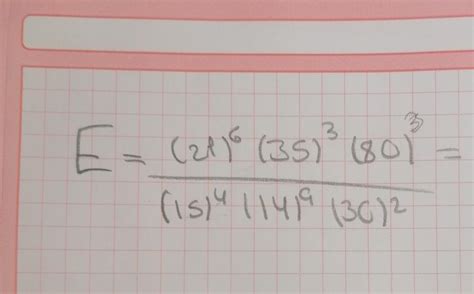 E = (21)⁶ (35)³ (80)³ =
(15)⁴ (14)⁹ (30)²